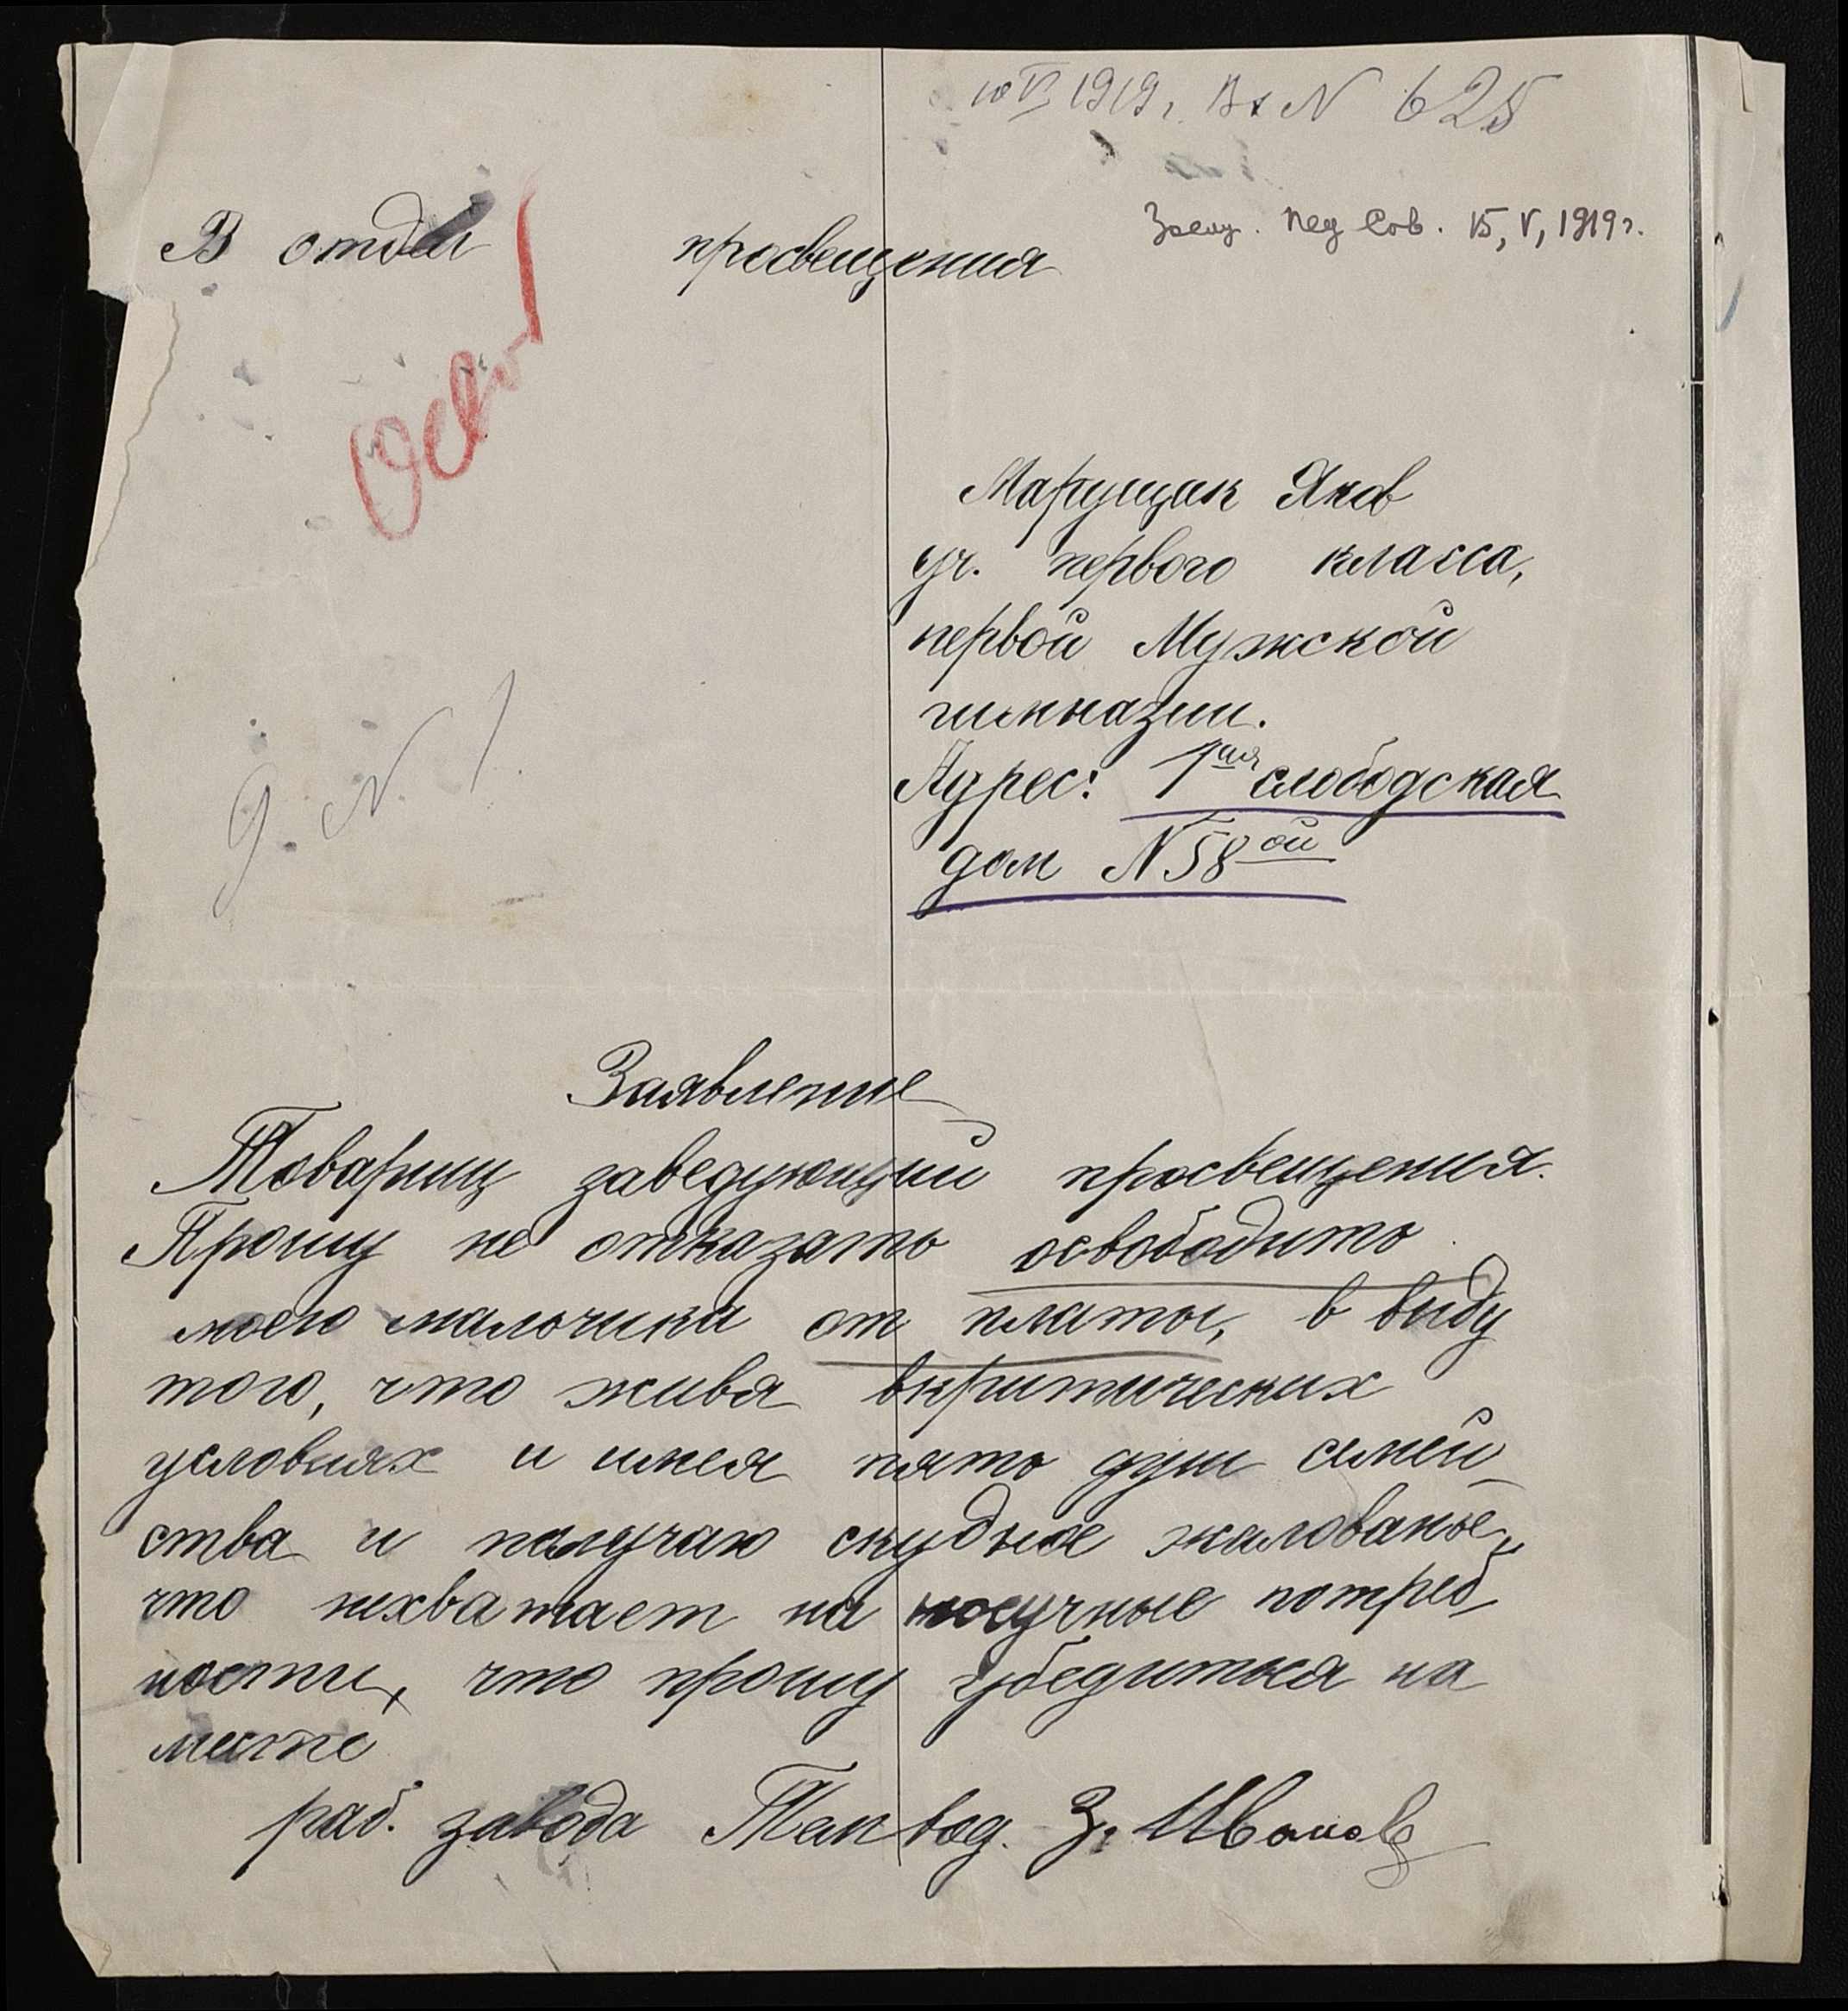 10 V 1919 г. Вх N 625
Засед. Пед Сов. 15, V, 1919 г.
В отдел просвещения
Осв
Марущак Яков
уч. первого класса,
первой Мужской
гимназии.
Адрес: 1ая слободская
дом N 58ой
д. N. 1
Заявление
Товарищ заведующий просвещения.
Прошу не отказать освободить
моего мальчика от платы, в виду
того, что живя вкритических
условиях и имея пять душ семей-
ства и получаю скудное жалованье,
что нехватает на насучные потреб-
ности, что прошу убедиться на
месте
раб. завода Теплвод. З. Иванов